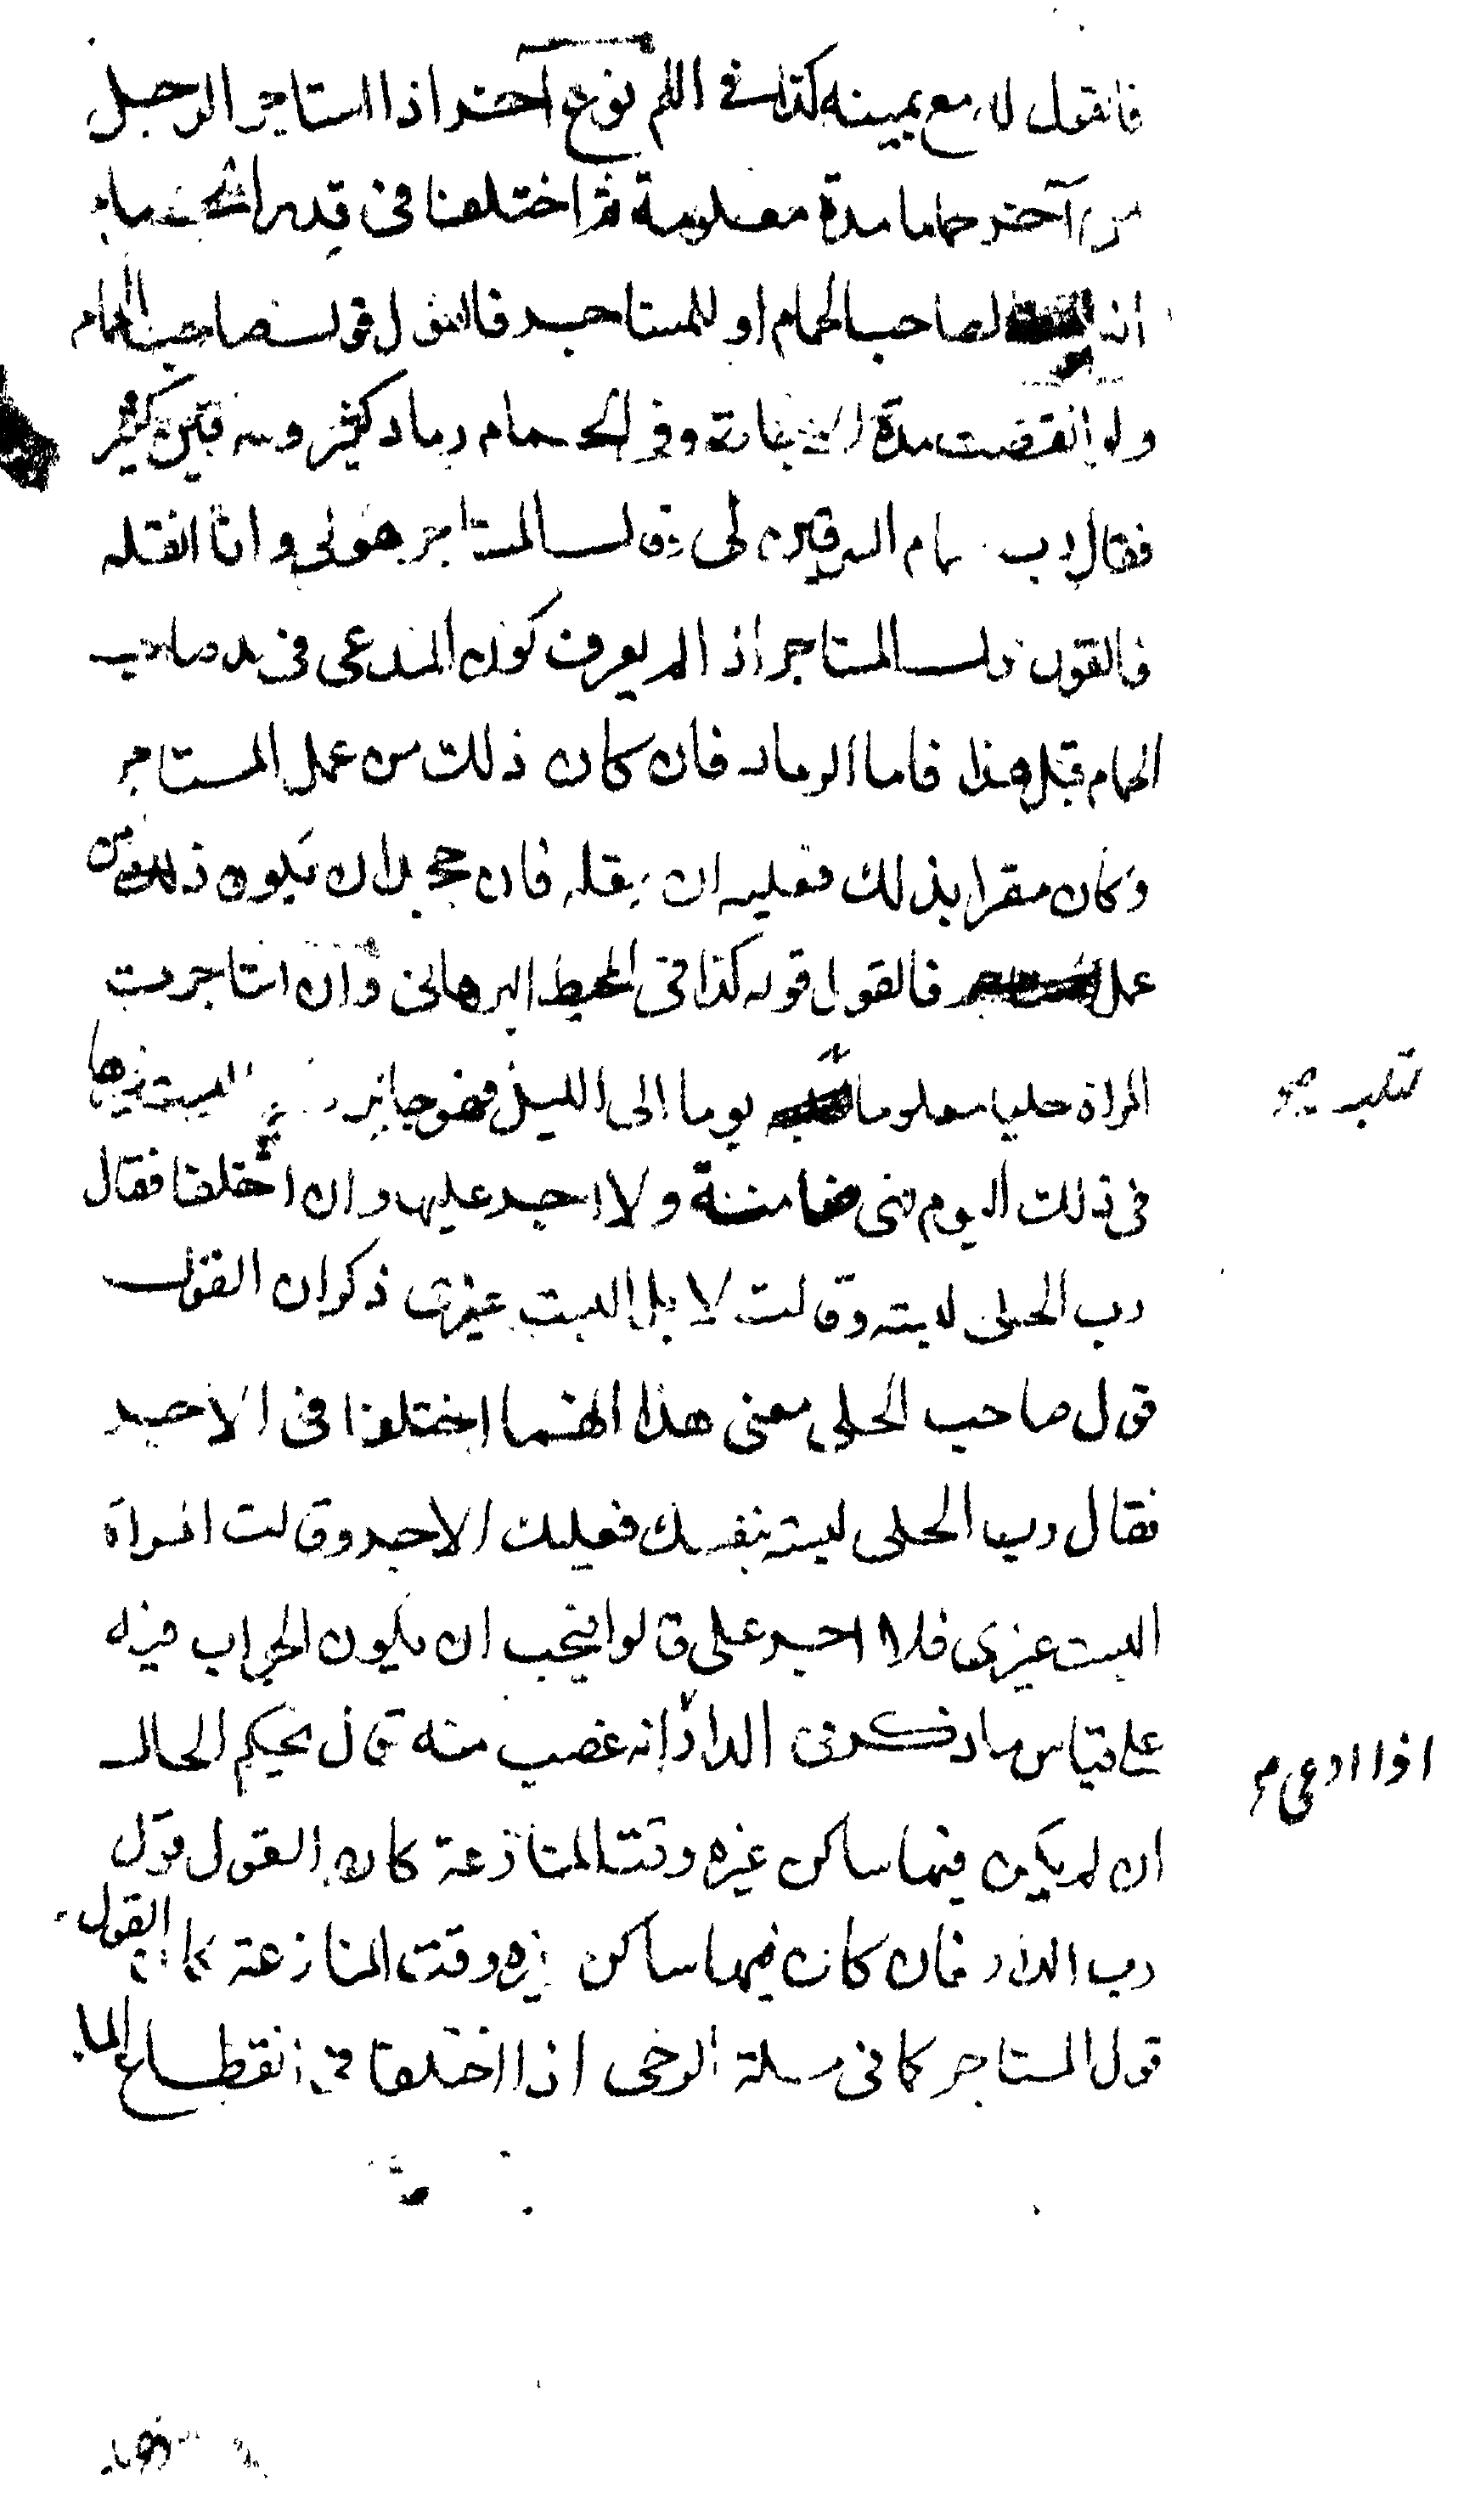 فالقول له مع يمينه كذا في نوع آخر اذا استاجر الرجل
من آخر حماما مدة معلومة ثم اختلفا في قدر
انه لصاحب الحمام او للمستاجر فالقول قول صاحب الحمام
ولو انقضت مدة الاجارة وفي الحمام رماد كثير وسرقين كثير
فقال رب الحمام السرقين لي وقال المستاجر هو لي وانا انقله
فالقول قول المستاجر اذا لم يعرف كون المدعى في يد صاحب
الحمام قبل هذا فاما الرماد فان كان ذلك من عمل المستاجر
وكان مقرا بذلك فعليه ان ينقله فان جحد ان يكون ذلك من
عمل فالقول قوله كذا في المحيط البرهاني وان استاجرت
المراة حليا معلوما يوما الى الليل فهو جائز البست غيرها
في ذلك اليوم فهي ضامنة ولا اجر عليها وان اختلفا فقال
رب الحلي لبسته وقالت لا بل البست غيري ذكر ان القول
قول صاحب الحلي معنى هذا انهما اختلفا في الاجر
فقال رب الحلي لبسته بنفسك فعليك الاجر وقالت المراة
البست غيري فلا اجر علي قالوا يجب ان يكون الجواب فيه
على قياس ما ذكر في الدار انه غصب منه قال يحكم الحال
ان لم يكن فيها ساكن غيره وقت المنازعة كان القول قول
رب الدار فان كان فيها ساكن غيره وقت المنازعة كان القول
قول المستاجر كما في مسلة الرحى اذا اختلفا في انقطاع الماء
اذا ادعى